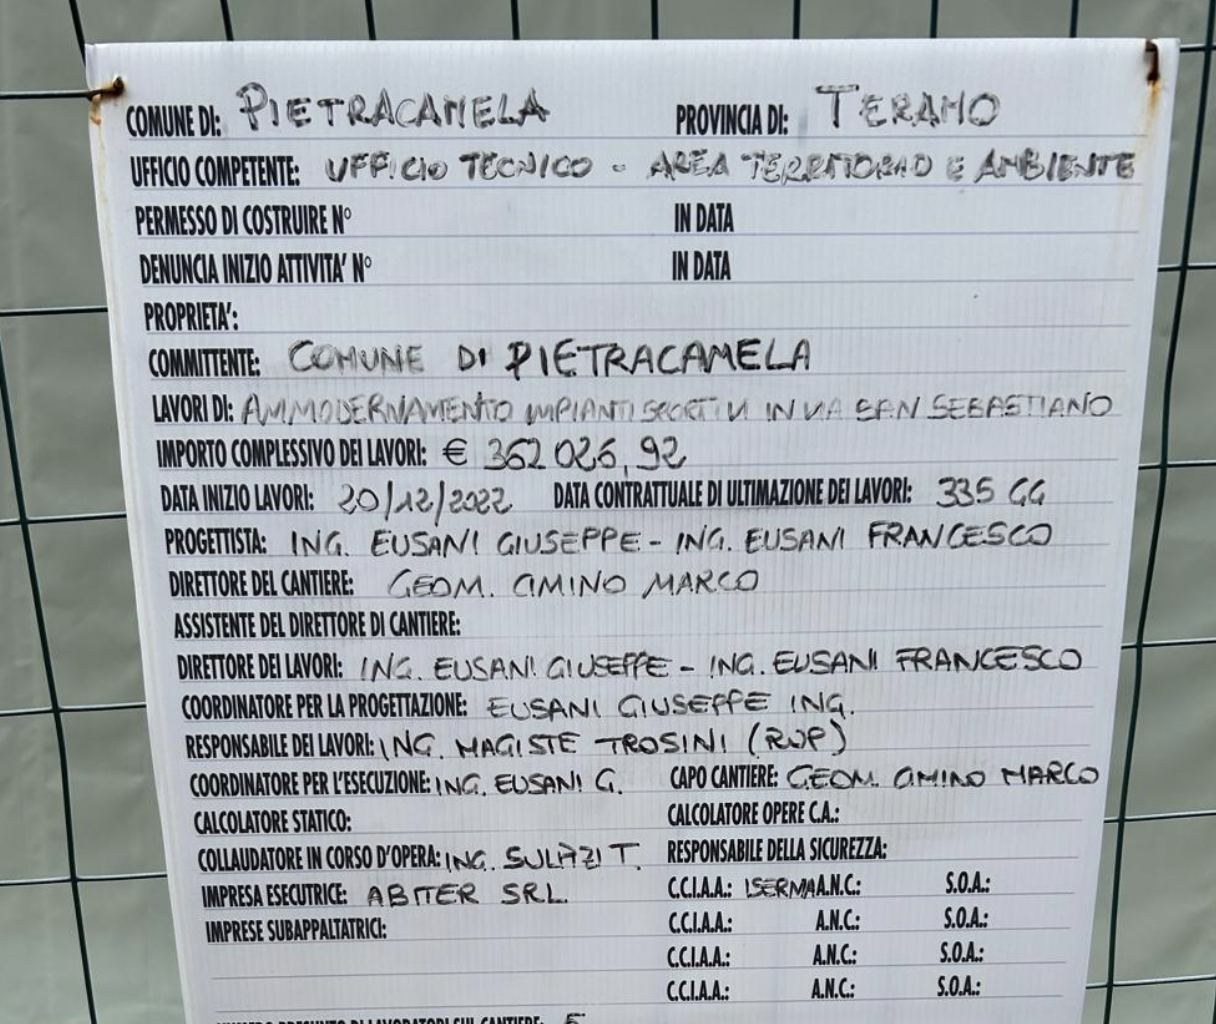 COMUNE DI: PIETRACAMELA PROVINCIA DI: TERAMO
UFFICIO COMPETENTE: UFFICIO TECNICO - AREA TERRITORIO E AMBIENTE
PERMESSO DI COSTRUIRE N° IN DATA
DENUNCIA INIZIO ATTIVITA' N° IN DATA
PROPRIETA':
COMMITTENTE: COMUNE DI PIETRACAMELA
LAVORI DI: AMMODERNAMENTO IMPIANTI SPORTIVI IN VIA SAN SEBASTIANO
IMPORTO COMPLESSIVO DEI LAVORI: € 362 026,92
DATA INIZIO LAVORI: 20/12/2022 DATA CONTRATTUALE DI ULTIMAZIONE DEI LAVORI: 335 GG
PROGETTISTA: ING. EUSANI GIUSEPPE - ING. EUSANI FRANCESCO
DIRETTORE DEL CANTIERE: GEOM. CIMINO MARCO
ASSISTENTE DEL DIRETTORE DI CANTIERE:
DIRETTORE DEI LAVORI: ING. EUSANI GIUSEPPE - ING. EUSANI FRANCESCO
COORDINATORE PER LA PROGETTAZIONE: EUSANI GIUSEPPE ING.
RESPONSABILE DEI LAVORI: ING. MAGISTE TROSINI (RUP)
COORDINATORE PER L'ESECUZIONE: ING. EUSANI G. CAPO CANTIERE: GEOM. CIMINO MARCO
CALCOLATORE STATICO: CALCOLATORE OPERE C.A.:
COLLAUDATORE IN CORSO D'OPERA: ING. T. RESPONSABILE DELLA SICUREZZA:
IMPRESA ESECUTRICE: ABITER SRL. C.C.I.A.A.: A.N.C.: S.O.A.:
IMPRESE SUBAPPALTATRICI: C.C.I.A.A.: A.N.C.: S.O.A.:
C.C.I.A.A.: A.N.C.: S.O.A.:
C.C.I.A.A.: A.N.C.: S.O.A.:
NUMERO PRESUNTO DI LAVORATORI SUL CANTIERE: 5